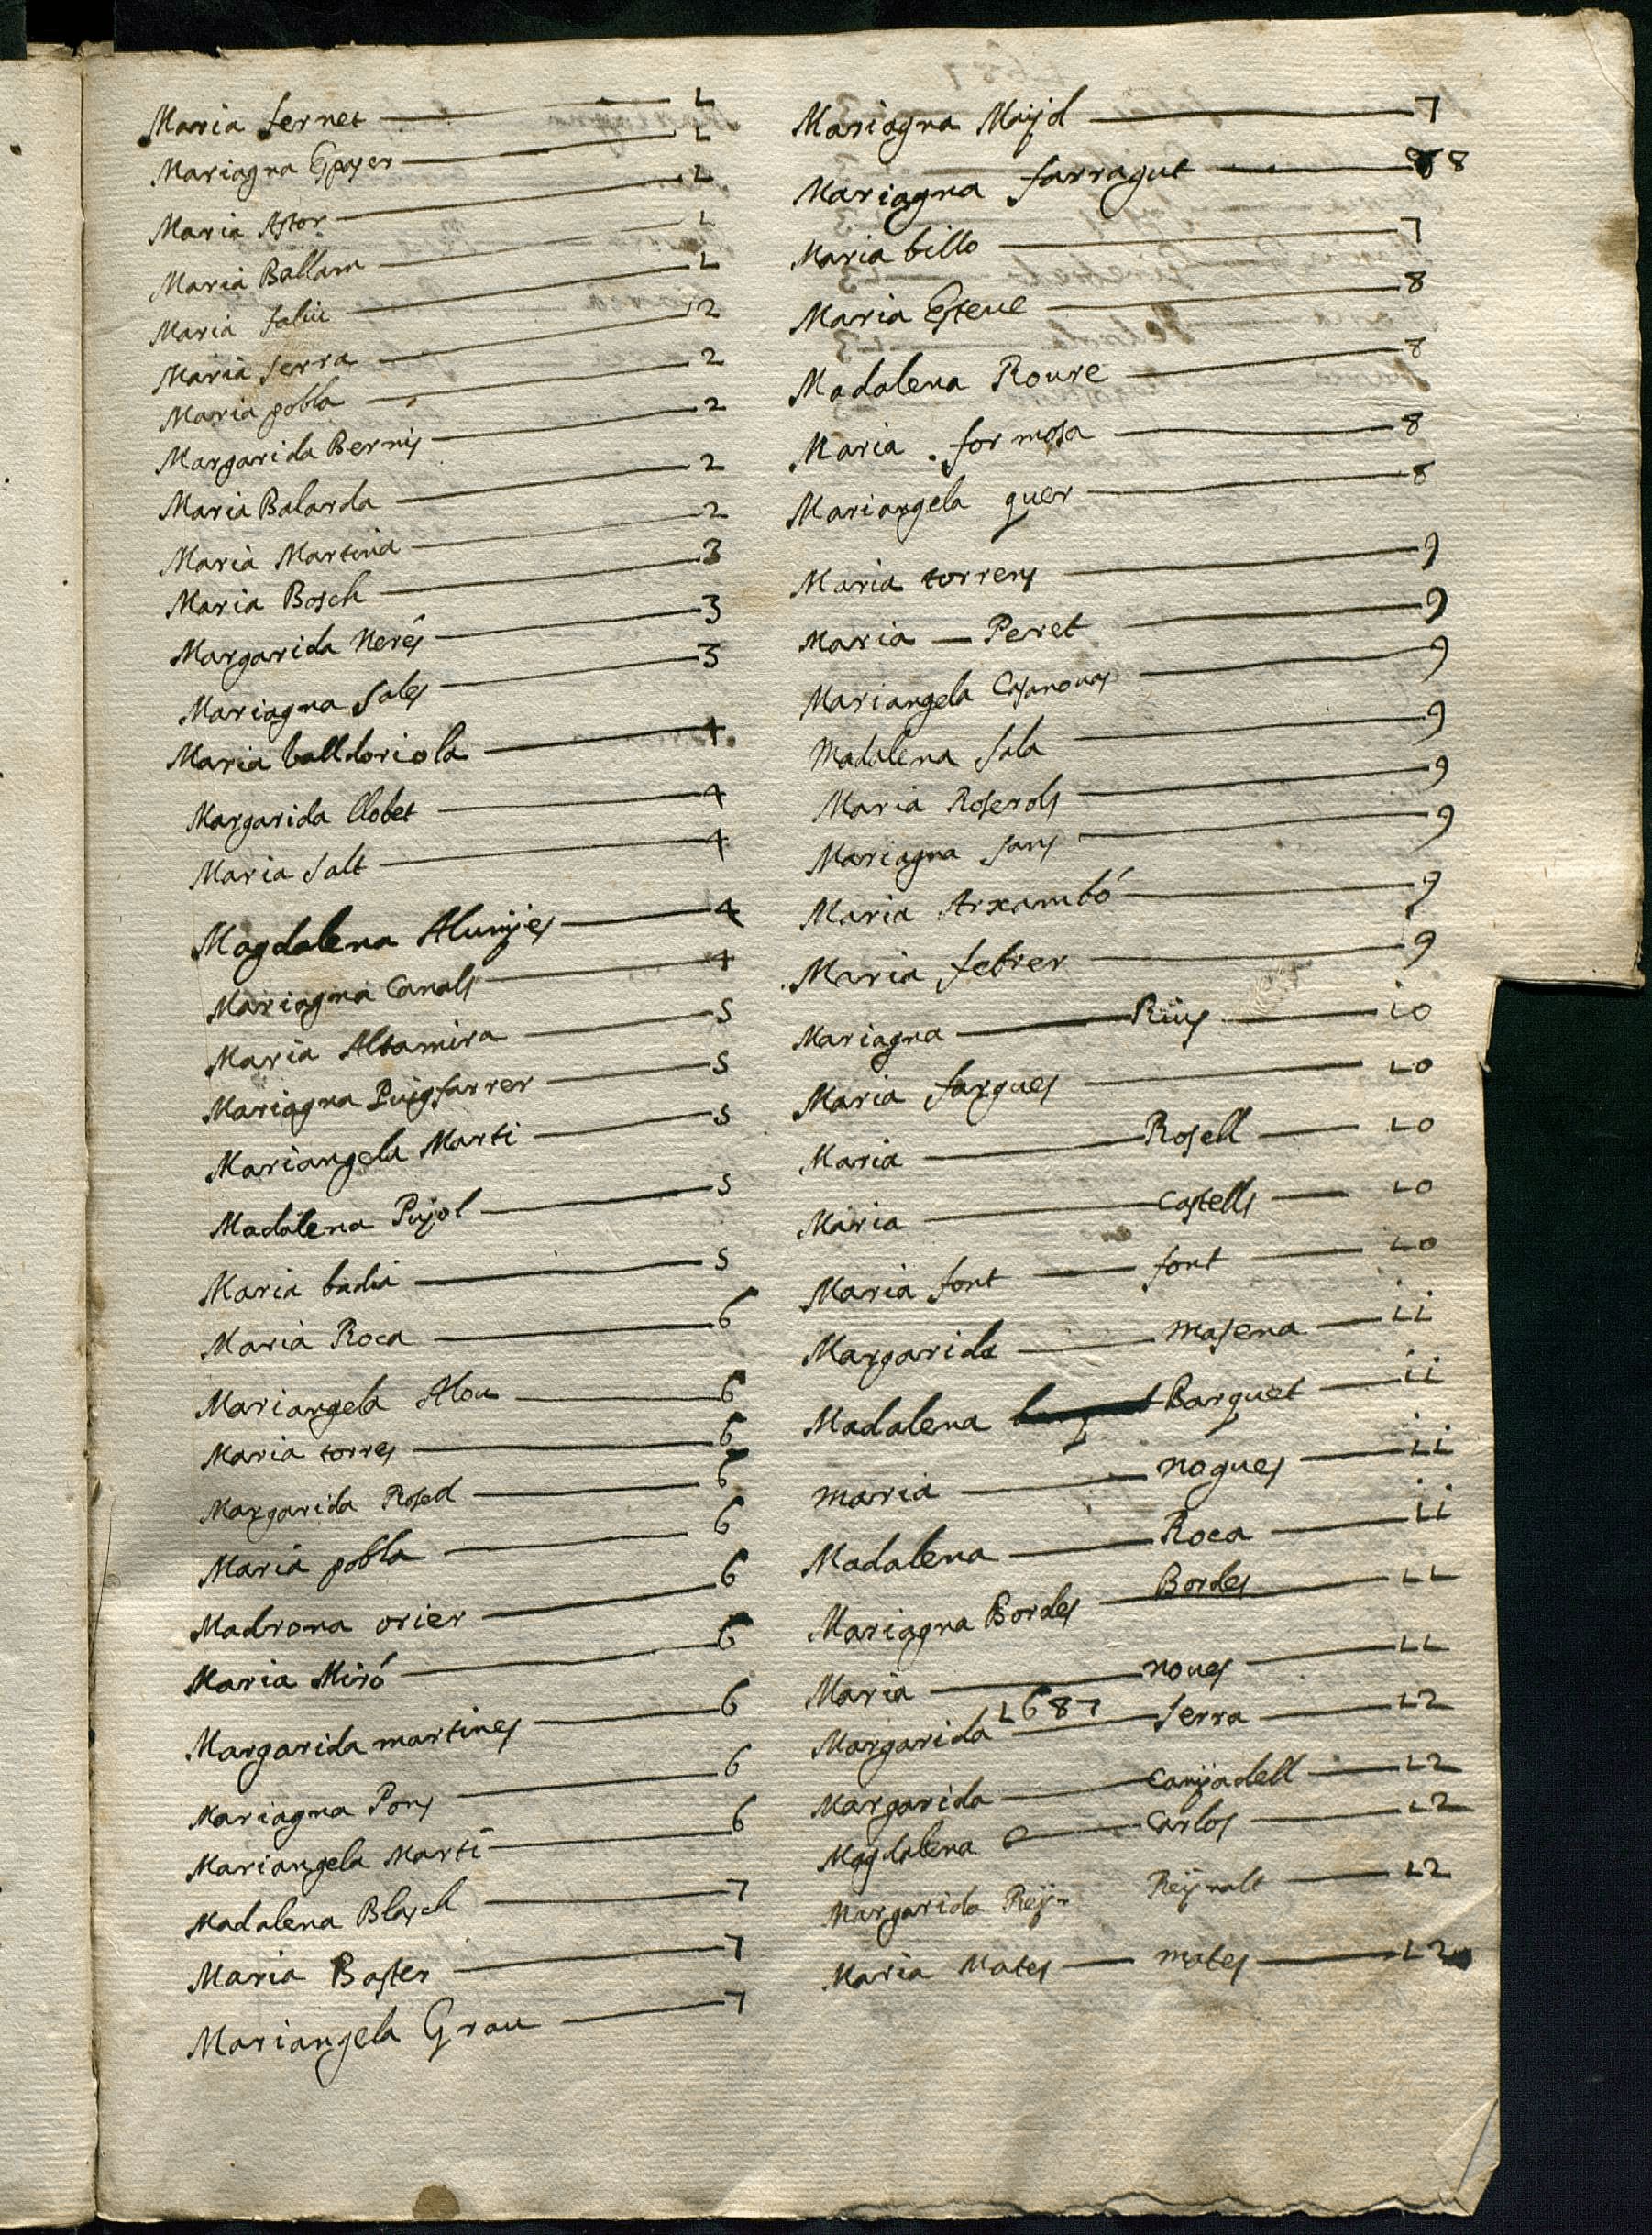 Maria Sernet — 1
Mariagna Espayer — 1
Maria Astor — 1
Maria Ballam — 1
Maria Saliu — 1
Maria Serra — 2
Maria pobla — 2
Margarida Bernis — 2
Maria Balarda — 2
Maria Martina — 2
Maria Bosch — 3
Margarida Nerés — 3
Mariagna Sales — 3
Maria balldoriola — 4
Margarida llobet — 4
Maria Salt — 4
Magdalena Alunijes — 4
Mariagna Canals — 4
Maria Altamira — 5
Mariagna Puigfarrer — 5
Mariangela Marti — 5
Madalena Pujol — 5
Maria badia — 5
Maria Roca — 6
Mariangela Alou — 6
Maria torres — 6
Margarida Rosed — 6
Maria pobla — 6
Madrona orier — 6
Maria Miró — 6
Margarida martines — 6
Mariagna Pons — 6
Mariangela Marti — 6
Madalena Blasch — 7
Maria Baster — 7
Mariangela Grau — 7
Mariagna Maijol — 7
Mariagna farragut — 8
Maria billo — 7
Maria Esteue — 8
Madalena Roure — 8
Maria formosa — 8
Mariangela quer — 8
Maria torrens — 9
Maria — Peret — 9
Mariangela Casanouas — 9
Madalena Sala — 9
Maria Roserols — 9
Mariagna Sans — 9
Maria Arxambó — 9
Maria febrer — 9
Mariagna — Rius — io
Maria fargues — 10
Maria — Rosell — 10
Maria — castells — 10
Maria font — font — 10
Margarida — masena — ii
Madalena — Barquet — ii
maria — nogues — ii
Madalena — Roca — ii
Mariagna Bordes — Bordes — 11
Maria — noues — 11
1687
Margarida — Serra — 12
Margarida — canjadell — 12
Magdalena — Carlos — 12
Margarida Reijn Reijnalt — 12
Maria Mates — mates — 12